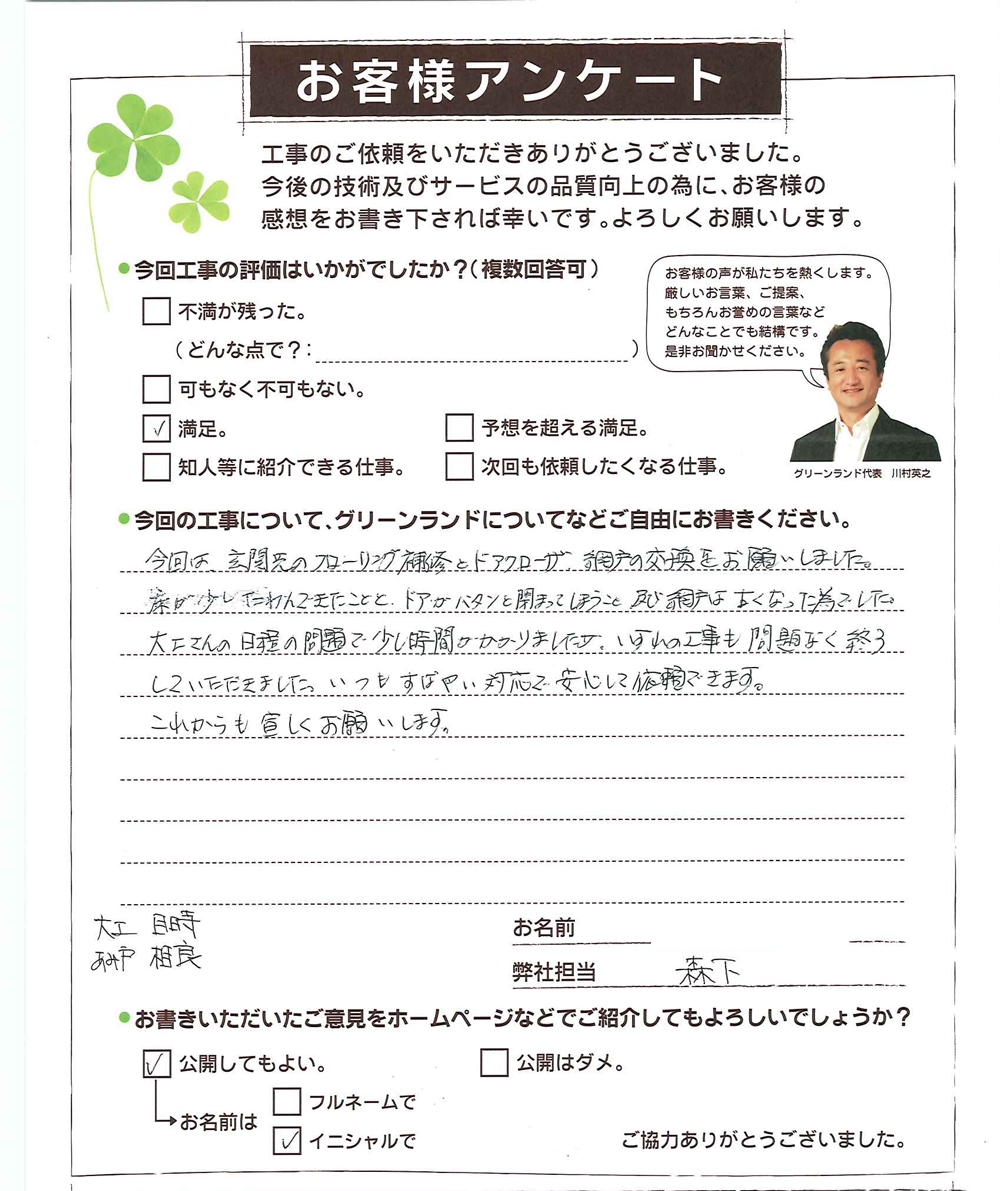 お客様アンケート
工事のご依頼をいただきありがとうございました。
今後の技術及びサービスの品質向上の為に、お客様の
感想をお書き下されば幸いです。よろしくお願いします。
今回工事の評価はいかがでしたか？（複数回答可）
不満が残った。
（どんな点で？：　　）
可もなく不可もない。
✓ 満足。
予想を超える満足。
知人等に紹介できる仕事。
次回も依頼したくなる仕事。
お客様の声が私たちを熱くします。
厳しいお言葉、ご提案、
もちろんお誉めの言葉など
どんなことでも結構です。
是非お聞かせください。
グリーンランド代表　川村英之
今回の工事について、グリーンランドについてなどご自由にお書きください。
今回は、玄関先のフローリング補修とドアクローザ、網戸の交換をお願いしました。
床が少したわんできたことと、ドアがバタンと閉まってしまうこと及び網戸は古くなった為でした。
大工さんの日程の問題で少し時間がかかりましたが、いずれの工事も問題なく終了
していただきました。いつもすばやい対応で安心して依頼できます。
これからも宜しくお願いします。
大工　目時
あみ戸　相良
お名前
弊社担当　森下
お書きいただいたご意見をホームページなどでご紹介してもよろしいでしょうか？
✓ 公開してもよい。
公開はダメ。
お名前は
フルネームで
✓ イニシャルで
ご協力ありがとうございました。